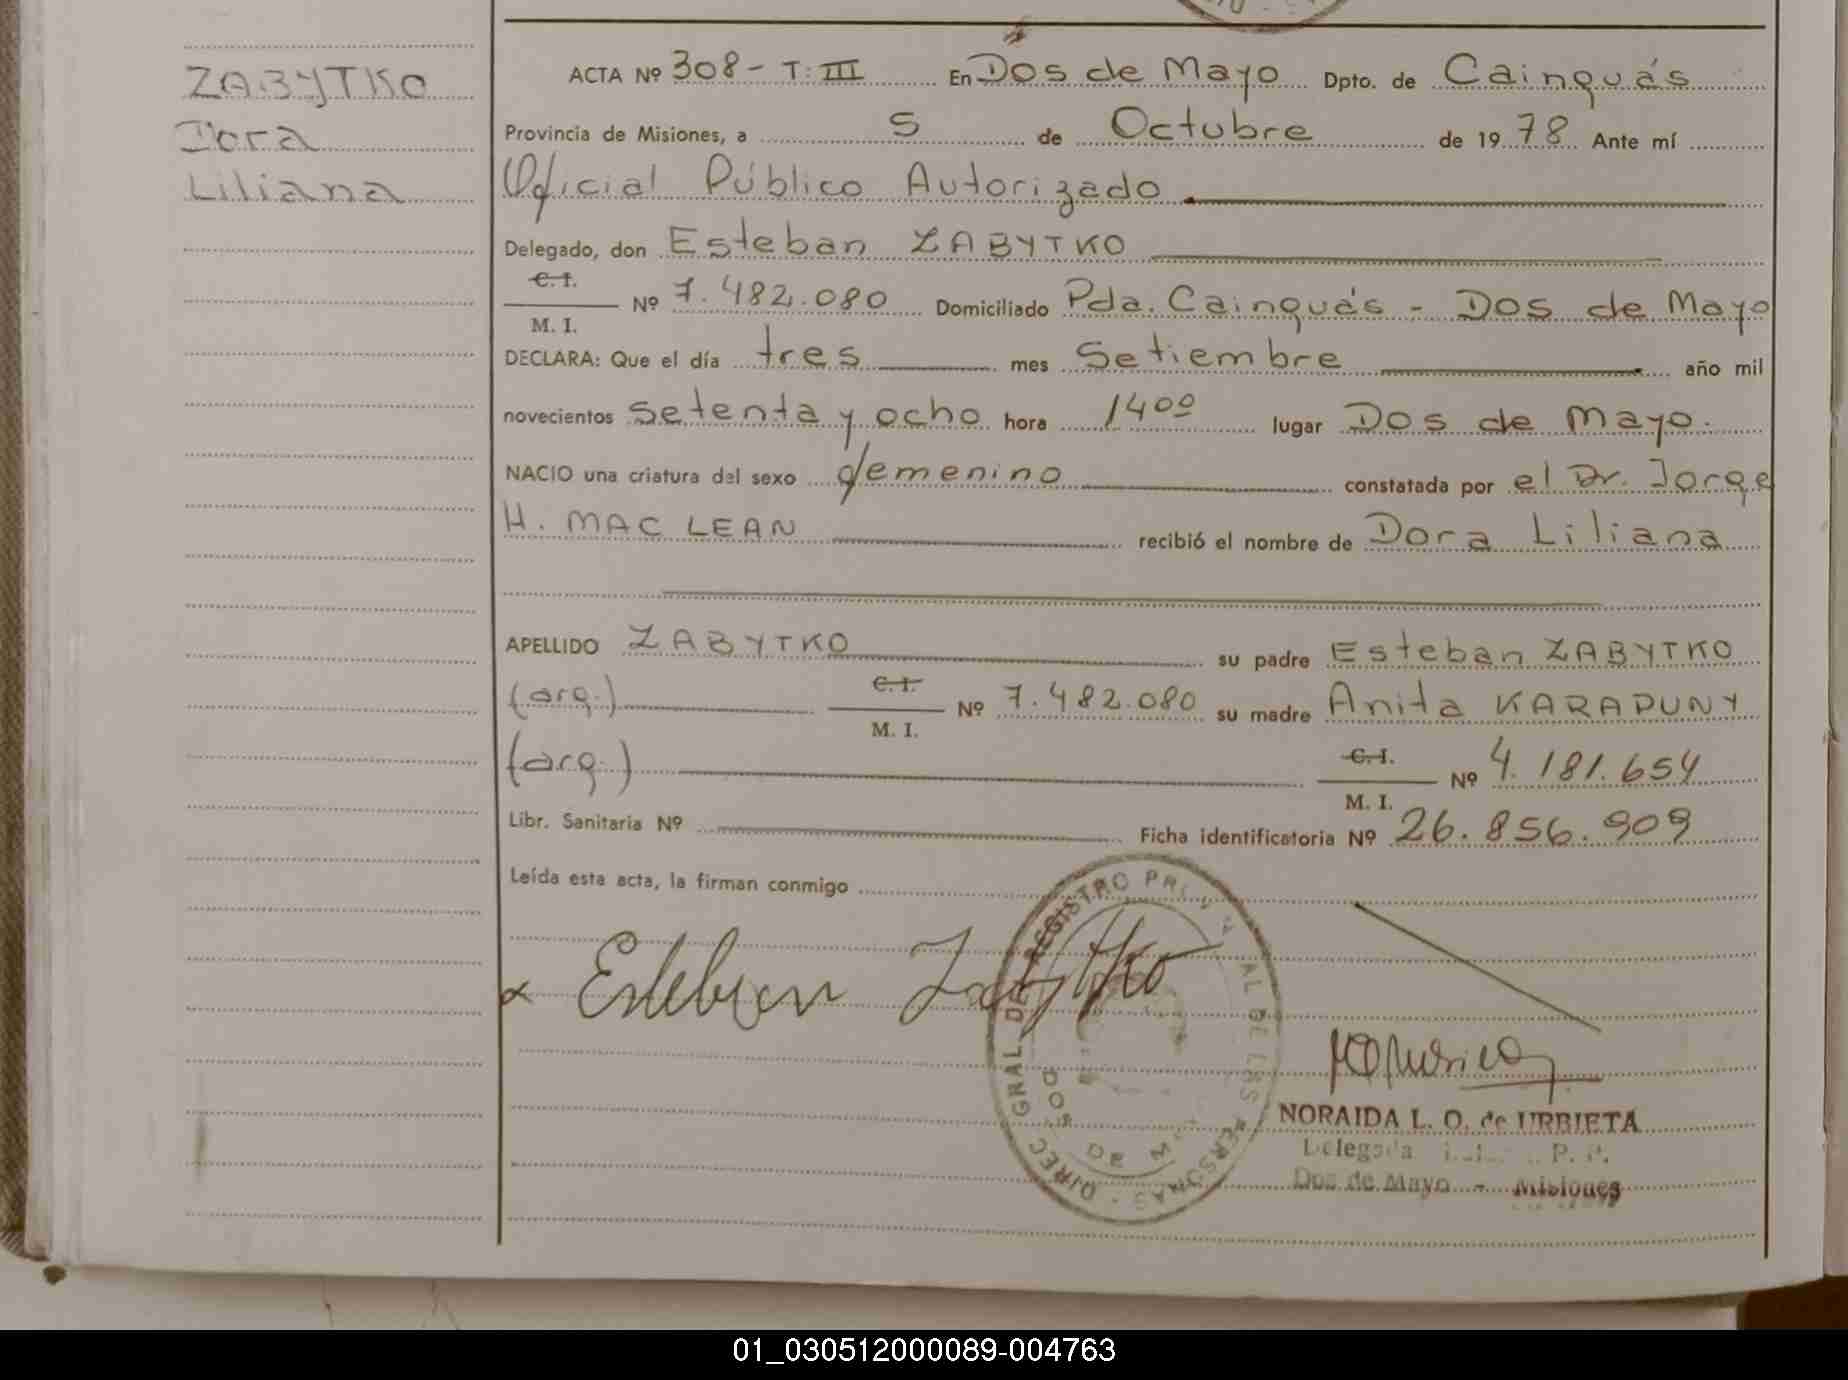 ZABYTKO
Dora
Liliana
ACTA Nº 308 - T: III En Dos de Mayo Dpto. de Cainguás
Provincia de Misiones, a 5 de Octubre de 1978 Ante mí
Oficial Público Autorizado
Delegado, don Esteban ZABYTKO
C. I.
M. I. Nº 7.482.080 Domiciliado Pda. Cainguás - Dos de Mayo
DECLARA: Que el día tres mes Setiembre año mil
novecientos setenta y ocho hora 14 00 lugar Dos de Mayo.
NACIO una criatura del sexo femenino constatada por el Dr. Jorge
H. MAC LEAN recibió el nombre de Dora Liliana
APELLIDO ZABYTKO su padre Esteban ZABYTKO
(arg.) C. I.
M. I. Nº 7.482.080 su madre Anita KARAPUNY
(arg.) C. I.
M. I. Nº 4.181.654
Libr. Sanitaria Nº Ficha identificatoria Nº 26.856.909
Leída esta acta, la firman conmigo
x Esteban Zabytko
DIREC GRAL DE REGISTRO DE LAS PERSONAS
DOS DE
NORAIDA L. O. de URBIETA
Delegada P. P.
Dos de Mayo - Misiones
01_030512000089-004763